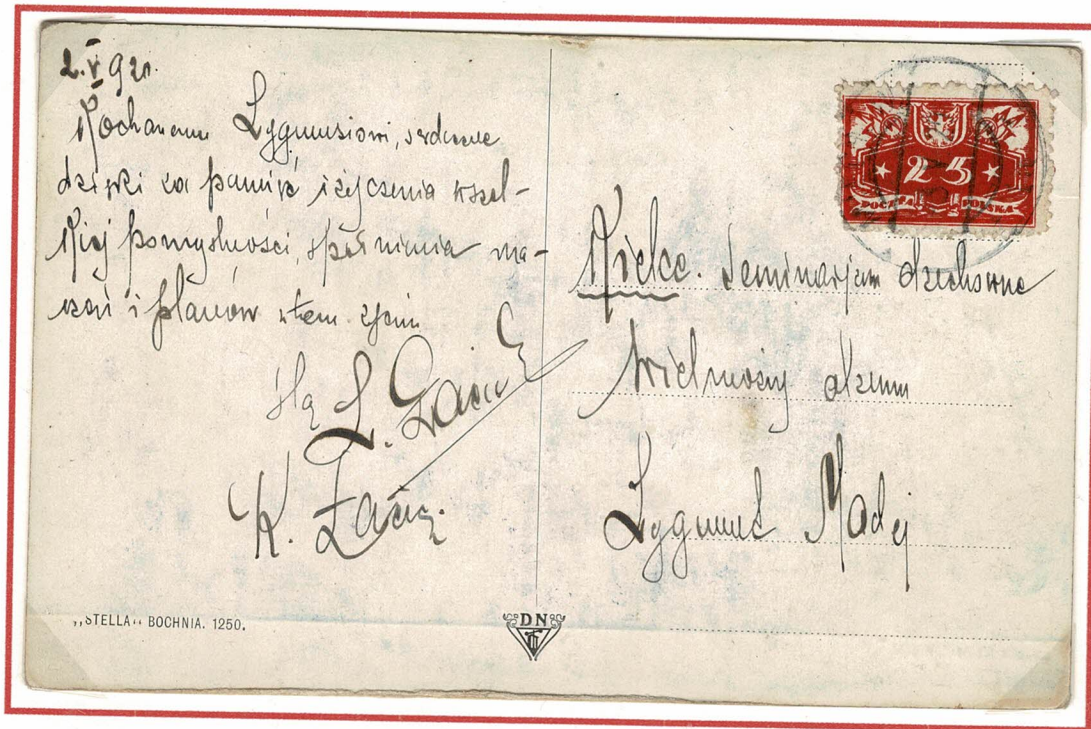 2.V 920.
Kochanemu Zygmusiowi, serdeczne
dzięki za pamięć i życzenia wszel-
kiej pomyślności, spełnienia ma-
rzeń i planów
K.
Kielce. Seminarjum duchowne
Wielmożny
Zygmunt Madej
25
POCZTA POLSKA
„STELLA" BOCHNIA. 1250.
DN